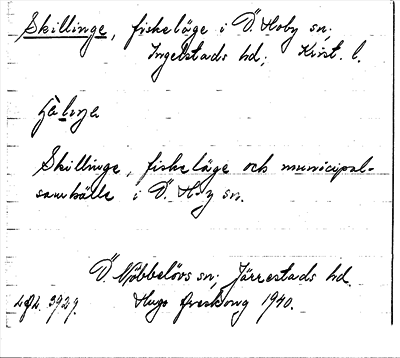 Skillinge, fiskeläge i Ö. Hoby sn;
Ingelstads hd; Krist. l.
Skillinge, fiskeläge och municipal-
samhälle i Ö. Hby sn.
Ö. Nöbbelövs sn; Järrestads hd.
3929. Hugo Areskoug 1940.